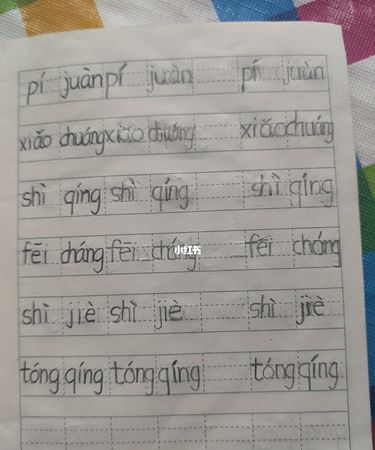 pí juàn pí juàn pí juàn
xiǎo chuáng xiǎo chuáng xiǎo chuáng
shì qíng shì qíng shì qíng
fēi cháng fēi cháng fēi cháng
小红书
shì jiè shì jiè shì jiè
tóng qíng tóng qíng tóng qíng